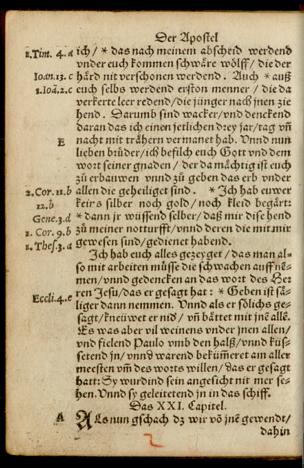 Der Apostel
1.Tim. 4.a ich / * das nach meinem abscheid werdend
vnder euch kommen schwäre wölff / die der
Ioan.13.c härd nit verschonen werdend. Auch * auß
1.Ioã.2.c euch selbs werdend erston menner / die da
verkerte leer redend / die jünger nach jnen zie
hend. Darumb sind wacker / vnd denckend
daran das ich einen jetlichen drey jar / tag vñ
E nacht mit trähern vermanet hab. Vnnd nun
lieben brüder / ich befilch euch Gott vnd dem
wort seiner gnaden / der da mächtig ist euch
zů erbauwen vnnd zů geben das erb vnder
2.Cor.11.b allen die geheiliget sind. * Ich hab euwer
12.b keirs silber noch gold / noch kleid begärt:
Gene.3.d * dann jr wüssend selber / daß mir dise hend
1. Cor. 9.b zů meiner notturfft / vnnd deren die mit mir
1. Thes.3.a gewesen sind / gedienet habend.
Ich hab euch alles gezeyget / das man al-
so mit arbeiten müsse die schwachen auffnê-
men / vnnd gedencken an das wort des Her
ren Jesu / das er gesagt hat: * Geben ist sä-
Eccli.4.e liger dann nemmen. Vnnd als er sölichs ge-
sagt / kneüwet er nid / vñ bättet mit jnẽ allẽ.
Es was aber vil weinens vnder jnen allen /
vnd fielend Paulo vmb den halß / vnnd küs-
setend jn / vnnd warend bekümeret am aller
meesten vm̃ des worts willen / das er gesagt
hatt: Sy wurdind sein angesicht nit mer se-
hen. Vnnd sy geleitetend jn in das schiff.
Das XXI. Capitel.
A Als nun gschach dz wir võ jnẽ gewendt /
dahin
2